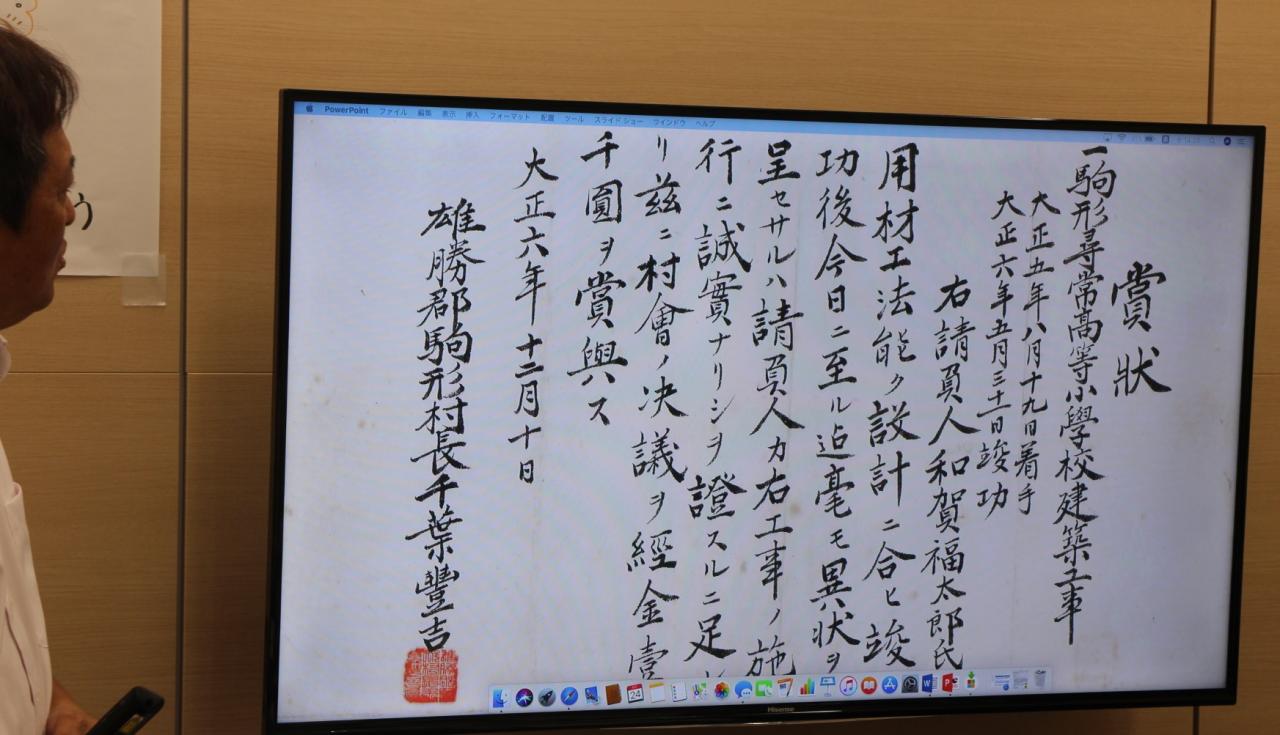 PowerPoint ファイル 編集 表示 挿入 フォーマット 配置 ツール スライドショー ウインドウ ヘルプ
賞狀
一駒形尋常高等小學校建築工事
大正五年八月十九日着手
大正六年五月三十一日竣功
右請負人和賀福太郎氏
用材工法能ク設計ニ合ヒ竣
功後今日ニ至ル迠毫モ異状ヲ
呈セサルハ請負人カ右工事ノ施
行ニ誠實ナリシヲ證スルニ足レ
リ玆ニ村會ノ决議ヲ經金壹
千圓ヲ賞與ス
大正六年十二月十日
雄勝郡駒形村長千葉豐吉
う
24
Hisense